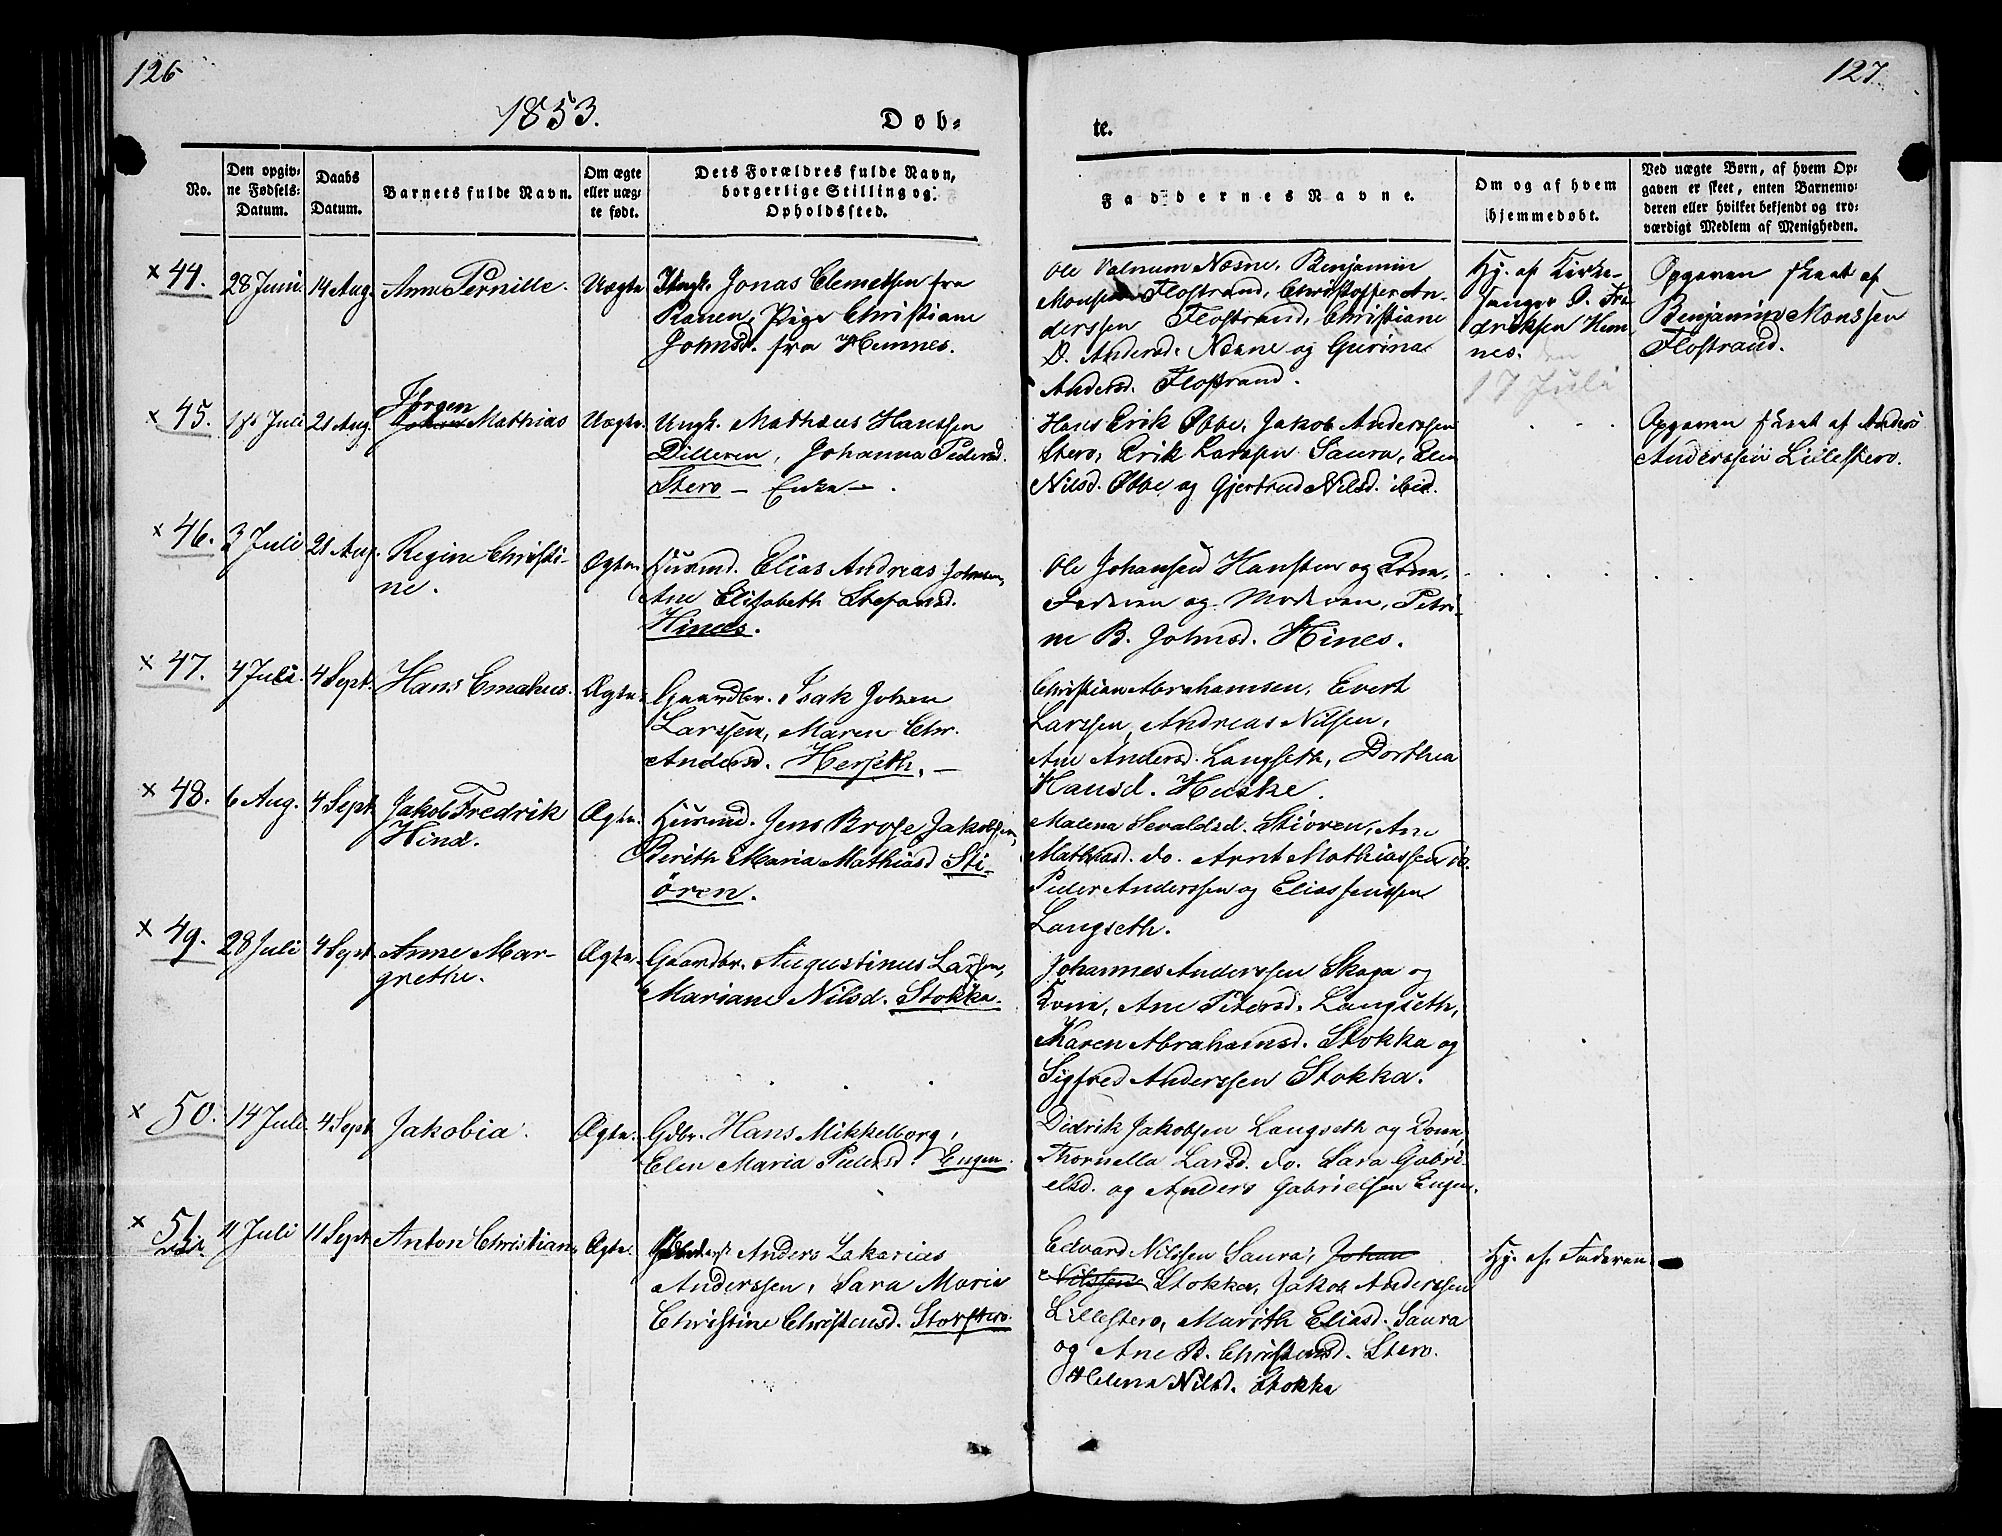 126
127.
1853.
Døb-
te.
No.
Den opgiv-
ne Fødsels-
Datum.
Daabs
Datum.
Barnets fulde Navn.
Om ægte
eller uæg-
te født.
Dets Forældres fulde Navn,
borgerlige Stilling og
Opholdssted.
Faddernes Navne.
Om og af hvem
hjemmedøbt.
Ved uægte Børn, af hvem Op-
gaven er skeet, enten Barnemo-
deren eller hvilket bekjendt og tro-
værdigt Medlem af Menigheden.
× 44.
28 Juni
14 Aug.
Anne Pernille.
Uægte
Ungk. Jonas Clemetsen fra
Ranen, Pige Christiane
Johnsd. fra Hemnes.
Ole Valnum Nesne, Benjamin
Monsen Flostrand, Christoffer An-
derssen Flostrand, Christiane
D. Andersd. Nesne og Gurina
Andersd. Flostrand.
Hj. af Kirke-
sanger O. Fre
driksen Hem
nes. den
17 Juli
Opgaven skeet af
Benjamin Monssen
Flostrand.
× 45.
Juli
21 Aug.
Jørgen
Mathias
Uægte
Ungk. Mathæus Hanssen
Dilleren, Johanna Pedersd.
Stero – Enke –.
Hans Erik Øbbe, Jakob Anderssen
Stero, Erik Larssen Saura, Elen
Nilsd. Øbbe og Gjertrud Nilsd. ibid.
Opgaven skeet af Anders
Anderssen Lillestero.
× 46.
3 Juli
21 Aug.
Regine Christi-
ne.
Ægte
Huusmd. Elias Andreas Johnsen,
Ane Elisabeth Stefansd.
Hinees.
Ole Johansen Hansten og Kone,
Faderen og Moderen, Petri-
ne B. Johnsd. Hines.
× 47.
4 Juli
4 Sept.
Hans Emahus.
Ægte
Gaardbr. Isak Johan
Larssen, Maren Chr.
Andersd. Herseth. –
Christian Abrahamsen, Evert
Larssen, Andreas Nilsen,
Ane Andersd. Langseth, Dorthea
Hansd. Huske.
× 48.
6 Aug.
4 Sept
Jakob Fredrik
Hind.
Ægte.
Huusmd. Jens Brose Jakobsen,
Berith Maria Mathiasd Sti-
ören.
Malena Sevaldsd. Stiören, Ane
Mathiasd. do. Arnt Mathiassen do.
Peder Anderssen og Elias Jenssen
Langseth.
× 49.
28 Juli
4 Sept
Anne Mar-
grethe.
Ægte.
Gaardbr. Augustinus Larsen,
Mariane Nilsd. Stokka.
Johannes Anderssen Skaga og
Kone, Ane Petersd. Langseth,
Karen Abrahamsd. Stokka og
Sigfred Anderssen Stokka.
× 50.
14 Juli
4 Sept
Jakobia.
Ægte.
Gdbr. Hans Mikkelborg,
Elen Maria Pedersd. Engen.
Didrik Jakobsen Langseth og Kone,
Thornella Larsd. do. Sara Gabri-
elsd. og Anders Gabrielsen Engen.
× 51.
11 Juli
11 Sept
Anton Christian
Ægte.
Anders Zakarias
Anderssen, Sara Marie
Christine Christensd. Storstero.
Edvard Nilssen Saura, Johan
Nilssen Stokka, Jakob Anderssen
Lillestero, Marith Eliasd. Saura
og Ane B. Christensd. Stero.
Helena Nilsd. Stokka
Hj. af Faderen.